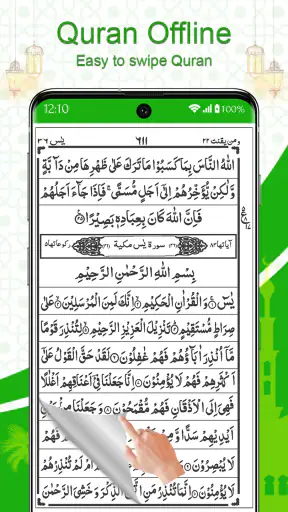 Quran Offline
Easy to swipe Quran
12:10
100%
يٰسٓ ٣٦
٦١١
ومن يقنت ٢٢
اللّٰهُ النَّاسَ بِمَا كَسَبُوْا مَا تَرَكَ عَلٰى ظَهْرِهَا مِنْ دَآبَّةٍ
وَّلٰكِنْ يُّؤَخِّرُهُمْ اِلٰٓى اَجَلٍ مُّسَمًّى ۚ فَاِذَا جَآءَ اَجَلُهُمْ
فَاِنَّ اللّٰهَ كَانَ بِعِبَادِهٖ بَصِيْرًا
اٰياتها ٨٣ سورة يٰسٓ مكية ركوعاتها ٥
بِسْمِ اللّٰهِ الرَّحْمٰنِ الرَّحِيْمِ
يٰسٓ ۚ وَالْقُرْاٰنِ الْحَكِيْمِ ۙ اِنَّكَ لَمِنَ الْمُرْسَلِيْنَ ۙ عَلٰى
صِرَاطٍ مُّسْتَقِيْمٍ ؕ تَنْزِيْلَ الْعَزِيْزِ الرَّحِيْمِ ۙ لِتُنْذِرَ قَوْمًا
مَّآ اُنْذِرَ اٰبَآؤُهُمْ فَهُمْ غٰفِلُوْنَ لَقَدْ حَقَّ الْقَوْلُ عَلٰٓى
اَكْثَرِهِمْ فَهُمْ لَا يُؤْمِنُوْنَ اِنَّا جَعَلْنَا فِيْٓ اَعْنَاقِهِمْ اَغْلٰلًا
فَهِيَ اِلَى الْاَذْقَانِ فَهُمْ مُّقْمَحُوْنَ وَجَعَلْنَا مِنْۢ بَيْنِ
اَيْدِيْهِمْ سَدًّا وَّمِنْ فَهُمْ
لَا يُبْصِرُوْنَ وَ لَمْ تُنْذِرْهُمْ
لَا يُؤْمِنُوْنَ اِنَّمَا تُنْذِرُ مَنِ اتَّبَعَ الذِّكْرَ وَخَشِيَ الرَّحْمٰنَ